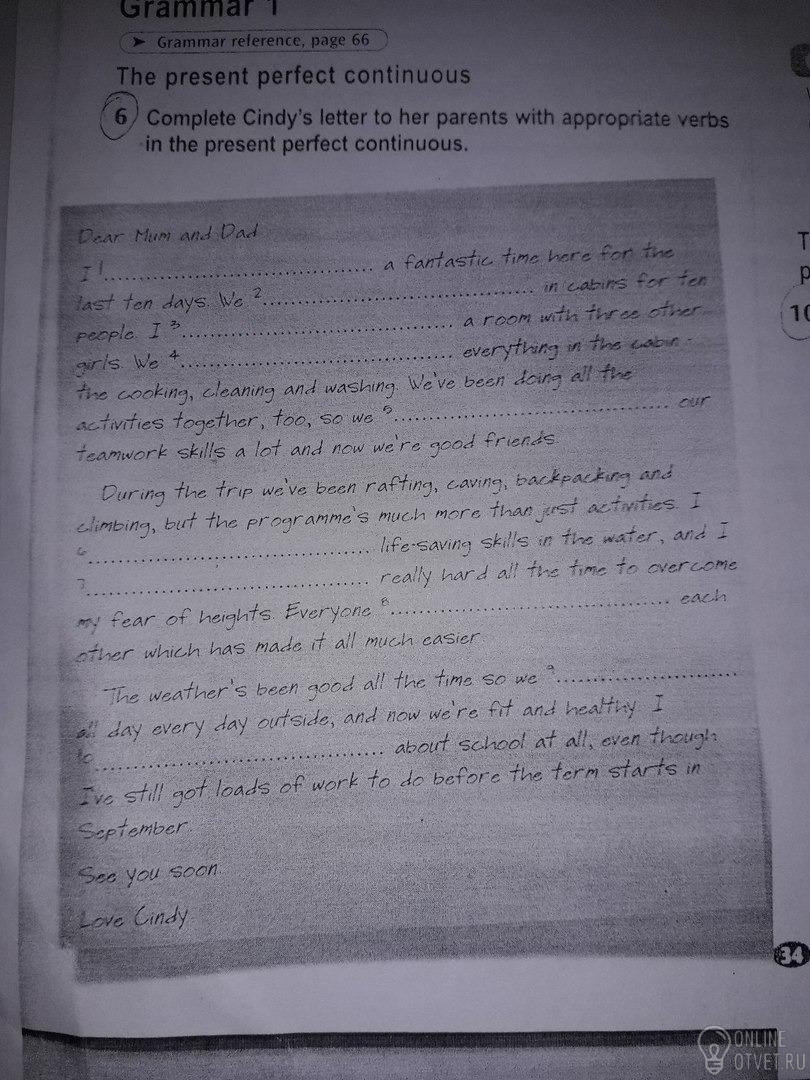 Grammar 1
➤ Grammar reference, page 66
The present perfect continuous
6 Complete Cindy's letter to her parents with appropriate verbs
in the present perfect continuous.
Dear Mum and Dad
I 1.................................... a fantastic time here for the
last ten days. We 2.................................... in cabins for ten
people. I 3.................................... a room with three other
girls. We 4.................................... everything in the cabin -
the cooking, cleaning and washing. We've been doing all the
activities together, too, so we 5.................................... our
teamwork skills a lot and now we're good friends.
During the trip we've been rafting, caving, backpacking and
climbing, but the programme's much more than just activities. I
6.................................... life-saving skills in the water, and I
7.................................... really hard all the time to overcome
my fear of heights. Everyone 8.................................... each
other which has made it all much easier.
The weather's been good all the time so we 9........................
all day every day outside, and now we're fit and healthy. I
10.................................... about school at all, even though
I've still got loads of work to do before the term starts in
September.
See you soon.
Love Cindy
T
p
10
34
ONLINE
OTVET.RU